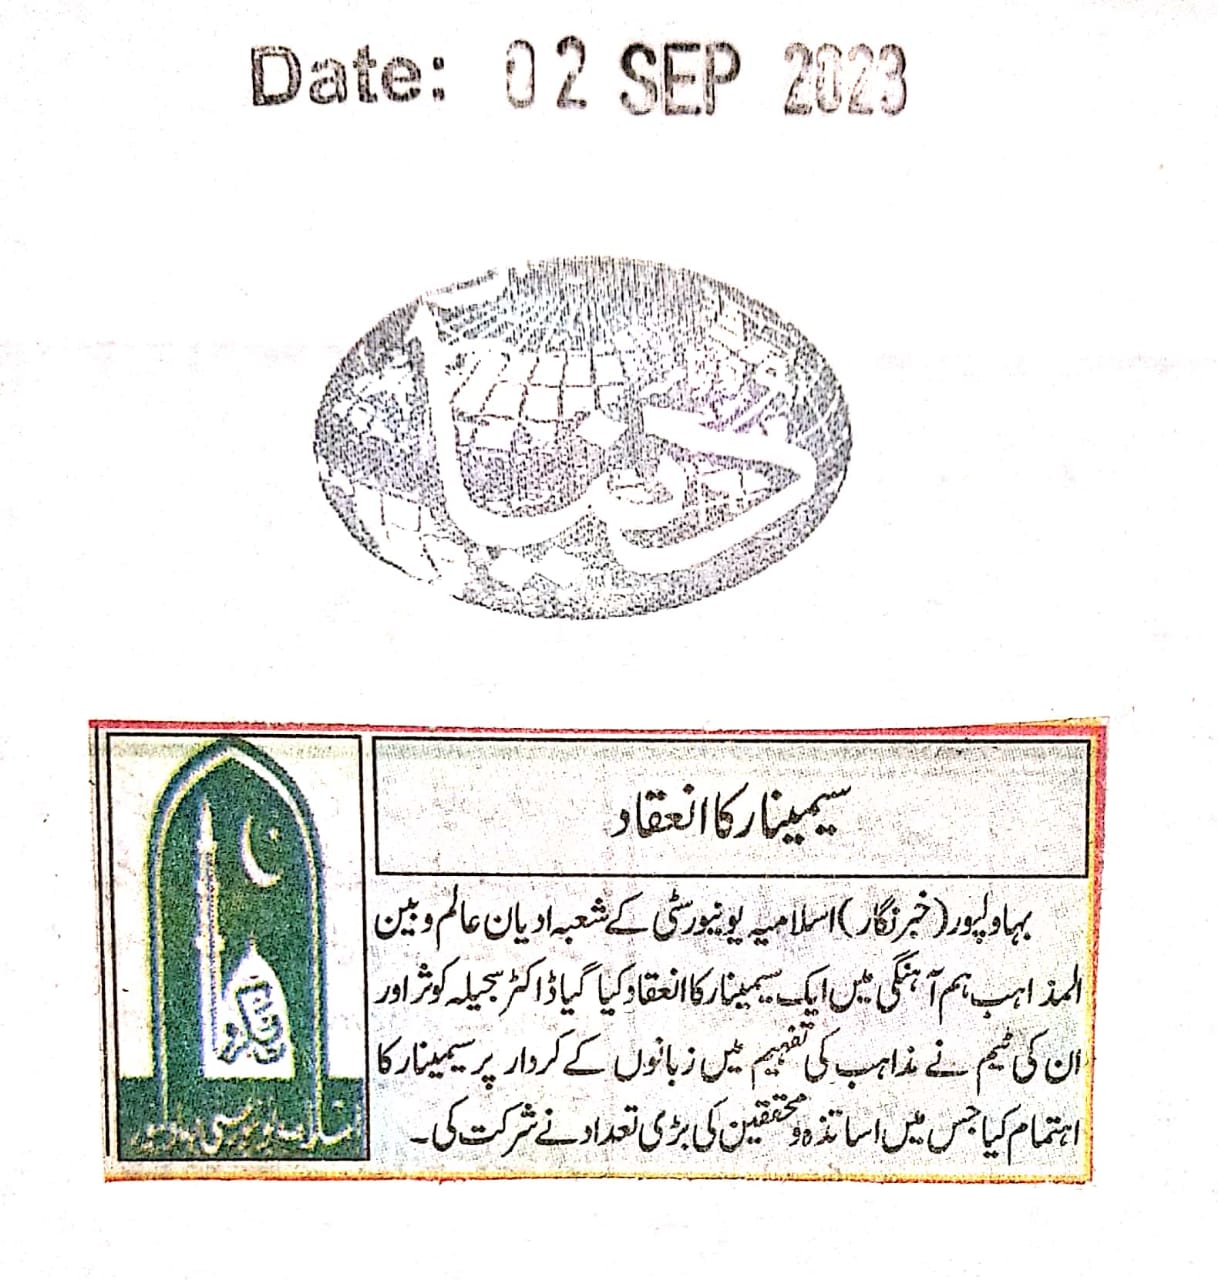 Date: 02 SEP 2023
دنیا
سیمینار کا انعقاد
بہاولپور (خبر نگار) اسلامیہ یونیورسٹی کے شعبہ ادیان عالم و بین
المذاہب ہم آہنگی میں ایک سیمینار کا انعقاد کیا گیا ڈاکٹر سجیلہ کوثر اور
ان کی ٹیم نے مذاہب کی تفہیم میں زبانوں کے کردار پر سیمینار کا
اہتمام کیا جس میں اساتذہ و محققین کی بڑی تعداد نے شرکت کی۔
اسلامیہ یونیورسٹی بہاولپور